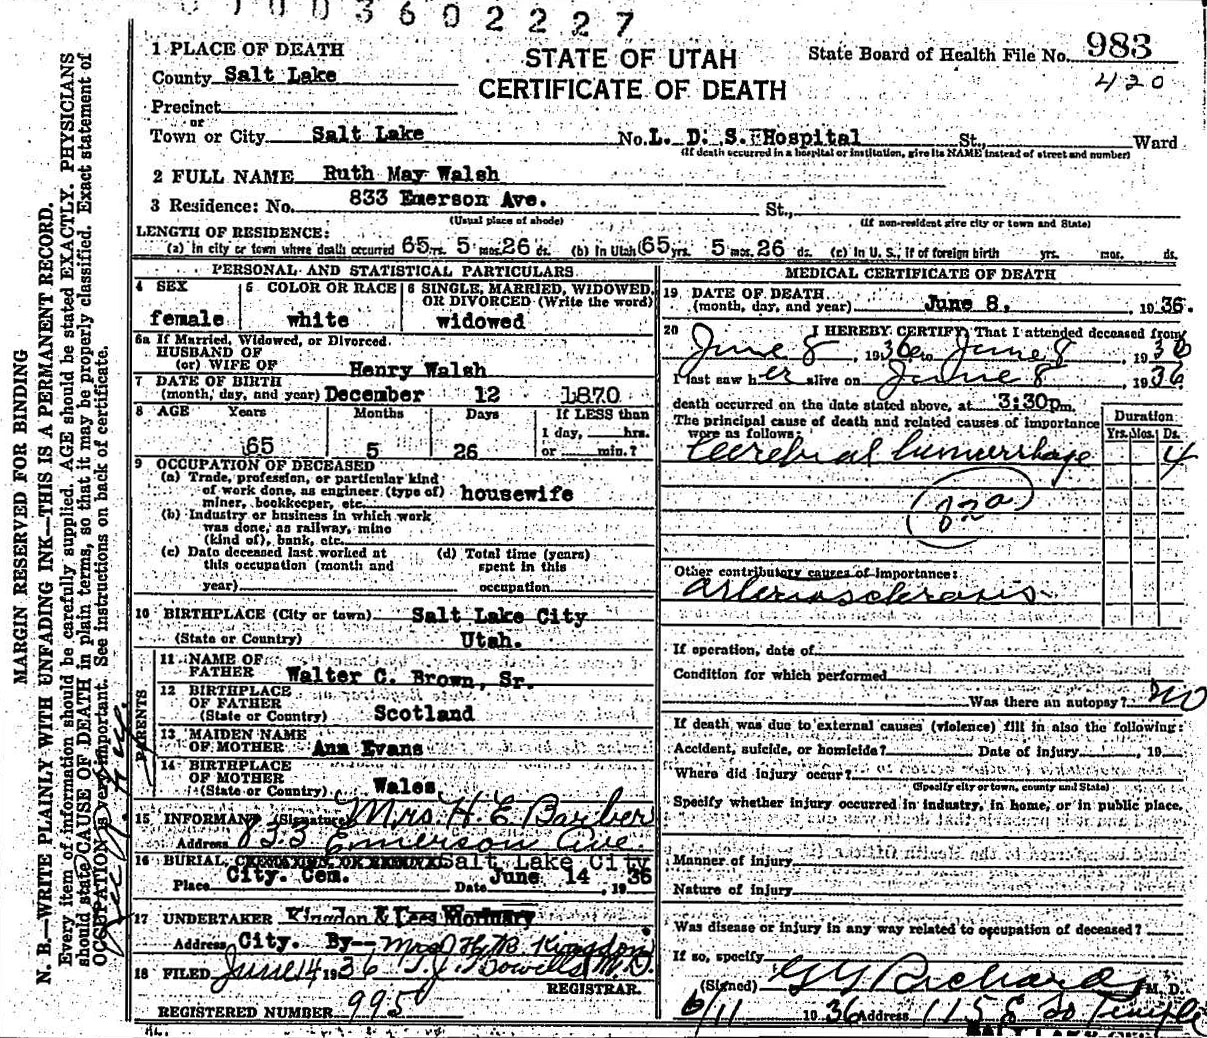 3 6 0 2 2 2 7
1 PLACE OF DEATH
STATE OF UTAH
CERTIFICATE OF DEATH
State Board of Health File No. 983
420
County Salt Lake
Precinct
or
Town or City Salt Lake No. L. D. S. Hospital St., Ward
(If death occurred in a hospital or institution, give its NAME instead of street and number)
2 FULL NAME Ruth May Walsh
3 Residence: No. 833 Emerson Ave. St.,
(Usual place of abode) (If non-resident give city or town and State)
LENGTH OF RESIDENCE:
(a) In city or town where death occurred 65 yrs. 5 mos. 26 ds. (b) In Utah 65 yrs. 5 mos. 26 ds. (c) In U. S., if of foreign birth yrs. mos. ds.
PERSONAL AND STATISTICAL PARTICULARS
4 SEX
female
5 COLOR OR RACE
white
6 SINGLE, MARRIED, WIDOWED,
OR DIVORCED (Write the word)
widowed
6a If Married, Widowed, or Divorced
HUSBAND OF
(or) WIFE OF Henry Walsh
7 DATE OF BIRTH
(month, day, and year) December 12 1870
8 AGE Years Months Days If LESS than
1 day, hrs.
65 5 26 or min.?
9 OCCUPATION OF DECEASED
(a) Trade, profession, or particular kind
of work done, as engineer (type of)
miner, bookkeeper, etc. housewife
(b) Industry or business in which work
was done, as railway, mine
(kind of), bank, etc.
(c) Date deceased last worked at
this occupation (month and
year)
(d) Total time (years)
spent in this
occupation
10 BIRTHPLACE (City or town) Salt Lake City
(State or Country) Utah.
PARENTS
11 NAME OF
FATHER Walter C. Brown, Sr.
12 BIRTHPLACE
OF FATHER
(State or Country) Scotland
13 MAIDEN NAME
OF MOTHER Ann Evans
14 BIRTHPLACE
OF MOTHER
(State or Country) Wales
15 INFORMANT (Signature) Mrs. H. E. Barber
Address 833 Emerson Ave.
16 BURIAL, CREMATION, OR REMOVAL Salt Lake City
Place City. Cem. Date June 14, 1936
17 UNDERTAKER Kingdon & Lees Mortuary
Address City. By-- Mrs J H B Kingdon
18 FILED June 14 1936 T. J. Howells M.D.
REGISTRAR.
REGISTERED NUMBER 995
MEDICAL CERTIFICATE OF DEATH
19 DATE OF DEATH
(month, day, and year) June 8, 1936.
20 I HEREBY CERTIFY, That I attended deceased from
June 8, 1936 to June 8, 1936
I last saw her alive on June 8, 1936
death occurred on the date stated above, at 3:30pm.
The principal cause of death and related causes of importance
were as follows:
Duration
Yrs. Mos. Ds.
Cerebral hemorrhage 4
82a
Other contributory causes of importance:
Arteriosclerosis
If operation, date of
Condition for which performed
Was there an autopsy? no
If death was due to external causes (violence) fill in also the following:
Accident, suicide, or homicide? Date of injury , 19
Where did injury occur?
(Specify city or town, county and State)
Specify whether injury occurred in industry, in home, or in public place.
Manner of injury
Nature of injury
Was disease or injury in any way related to occupation of deceased?
If so, specify
(Signed) G G Richards M. D.
6/11 1936 Address 115 E So Temple
SALT LAKE CITY
MARGIN RESERVED FOR BINDING
N. B.—WRITE PLAINLY WITH UNFADING INK—THIS IS A PERMANENT RECORD.
Every item of information should be carefully supplied. AGE should be stated EXACTLY. PHYSICIANS
should state CAUSE OF DEATH in plain terms, so that it may be properly classified. Exact statement of
OCCUPATION is very important. See instructions on back of certificate.